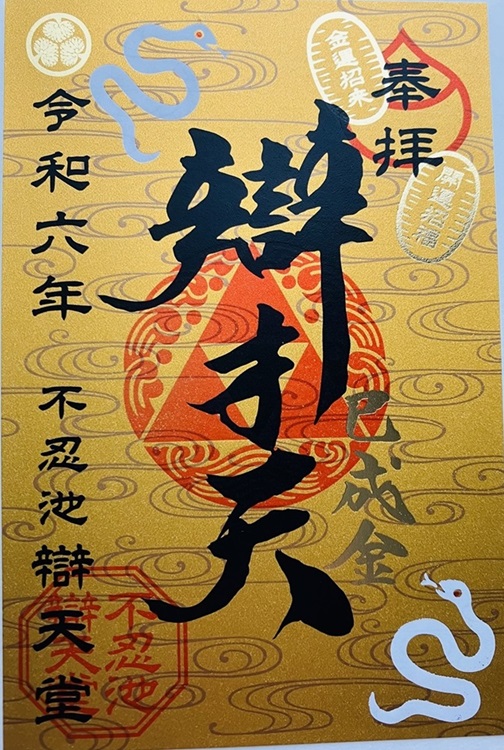 奉拝
金運招来
開運招福
辯才天
巳成金
令和六年 不忍池辯天堂
不忍池
辯天堂